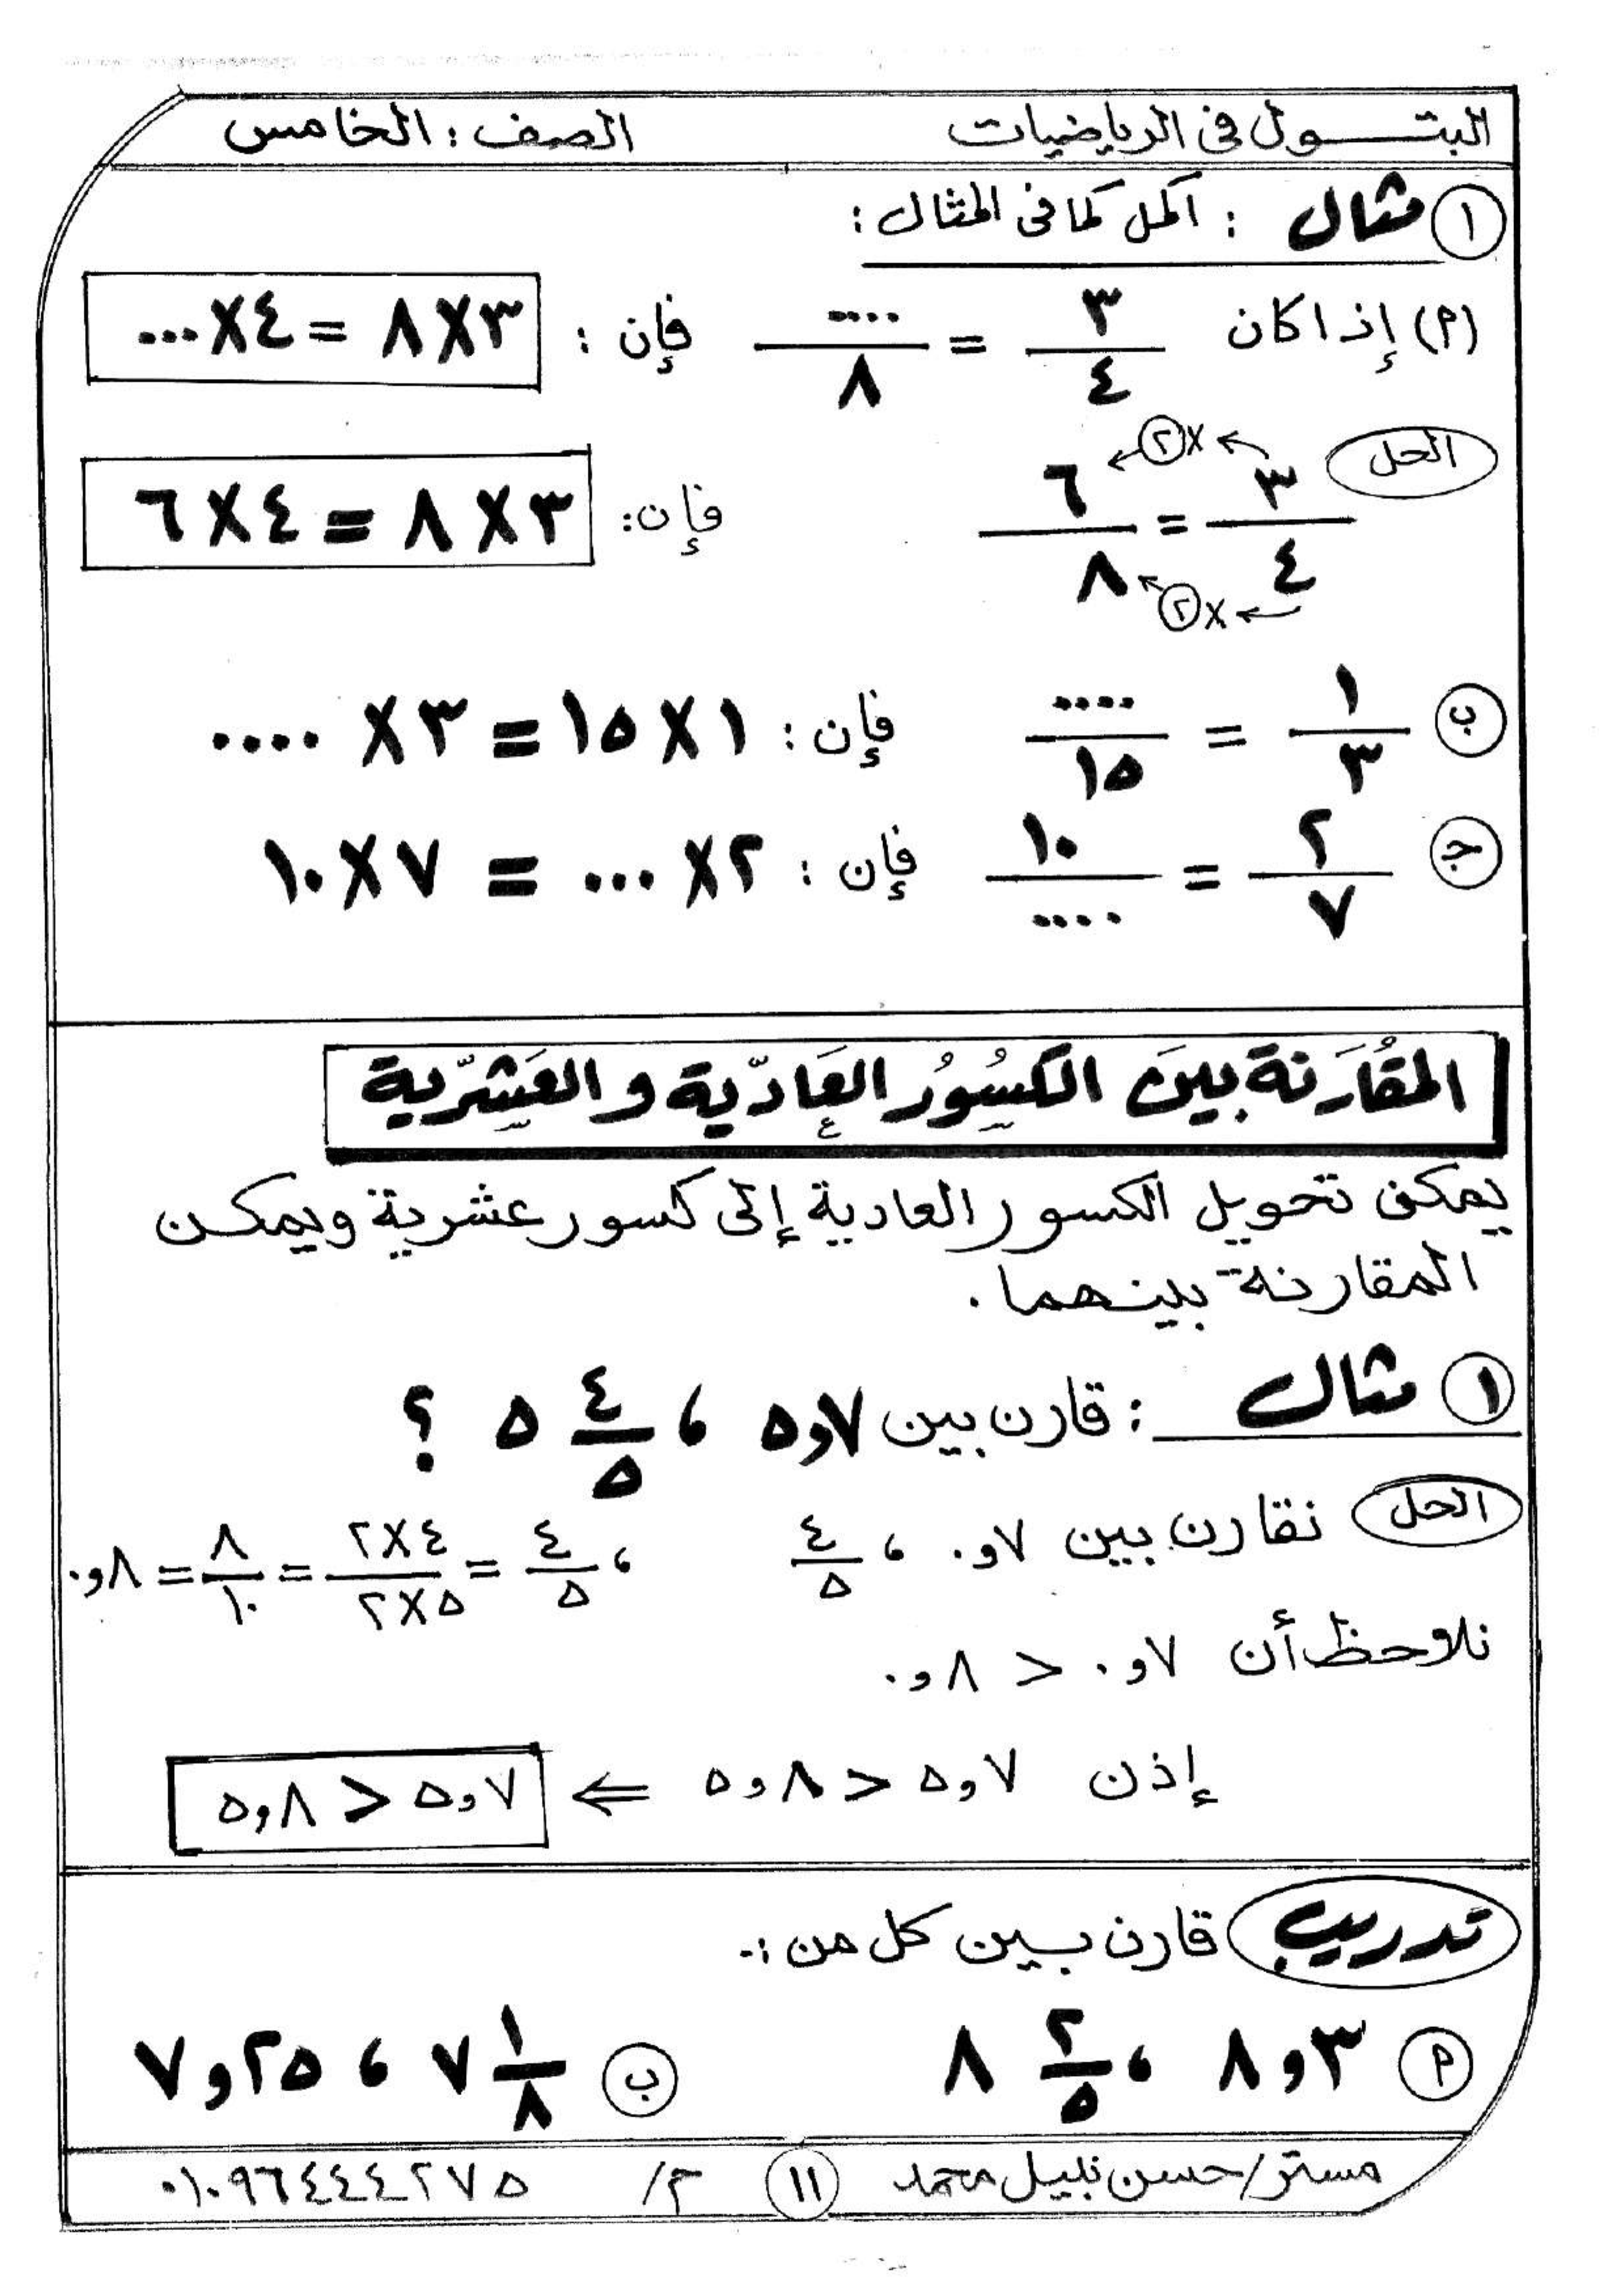 البتــول فى الرياضيات الصف : الخامس
١ مثال : أكمل كما فى المثال :
(٢) إذا كان ٣/٤ = ..../٨ فإن : ٣ X ٨ = ٤ X ...
الحل ٣/٤ = ٦/٨ فإن: ٣ X ٨ = ٤ X ٦
X ٢
X ٢
ب ١/٣ = ..../١٥ فإن : ١ X ١٥ = ٣ X ....
ج ٢/٧ = ١٠/.... فإن : ٢ X ... = ٧ X ١٠
المقُارَنة بينَ الكسُوُر العَادّية والعَشِرّية
يمكن تحويل الكسور العادية إلى كسور عشرية ويمكن
المقارنة بينهما .
١ مثال : قارن بين ٥,٧ ، ٥ ٤/٥ ؟
الحل نقارن بين ٠,٧ ، ٤/٥ ، ٤/٥ = ٤X٢/٥X٢ = ٨/١٠ = ٠,٨
نلاحظ أن ٠,٧ < ٠,٨
إذن ٥,٧ < ٥,٨ ⇐ ٥,٧ < ٥,٨
تدريب قارن بين كل من :.
٢ ٨,٣ ، ٨ ٢/٥ ب ٧ ١/٨ ، ٧,٢٥
مستر/حسن نبيل محمد ١١ م/ ٠١٠٩٦٤٤٤٢٧٥